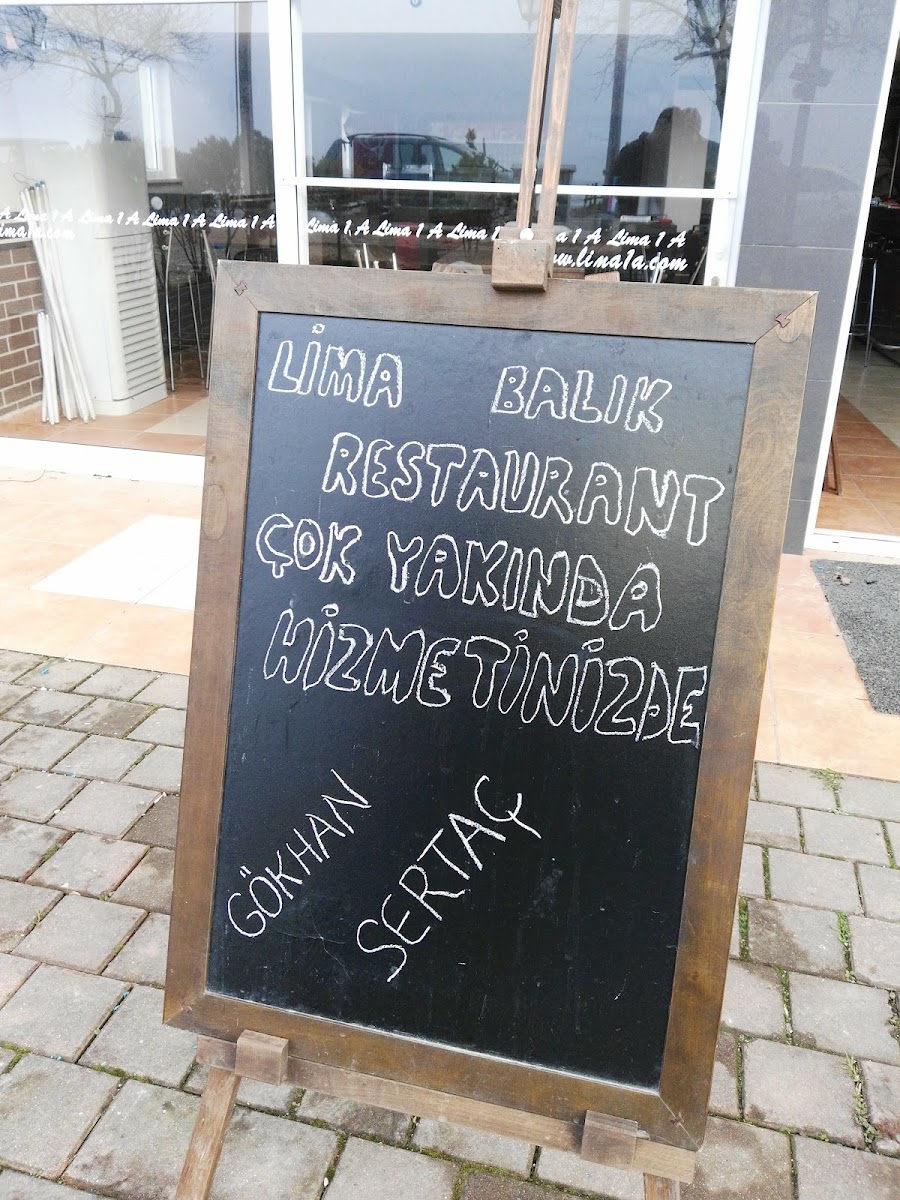 A Lima 1 A Lima 1 A Lima 1 A Lima 1 A
Lima 1 A Lima 1 A Lima 1 A Lima 1 A
lima1a.com
www.lima1a.com
LİMA BALIK
RESTAURANT
ÇOK YAKINDA
HİZMETİNİZDE
GÖKHAN
SERTAÇ